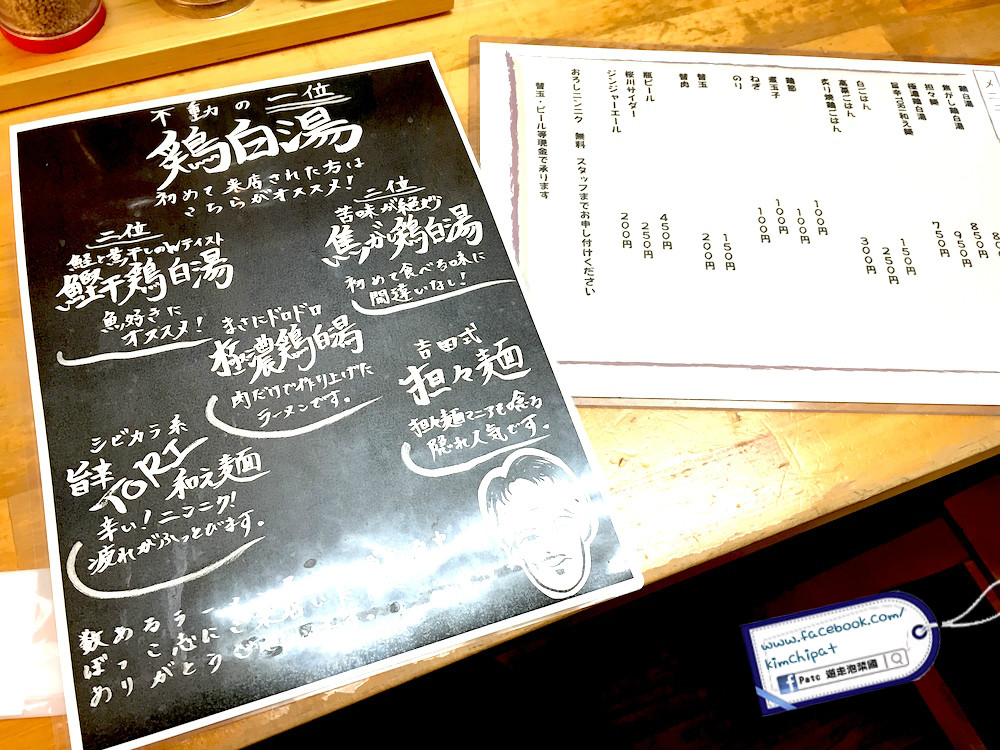 不動の一位
鶏白湯
初めて来店された方は
こちらがオススメ!
二位
苦味が絶妙
焦がし鶏白湯
初めて食べる味に
間違いなし!
三位
鰹と煮干しのWテイスト
鰹干鶏白湯
魚好きに
オススメ!
まさにドロドロ
極濃鶏白湯
肉だけで作り上げた
ラーメンです。
吉田式
担々麺
担々麺マニアも唸る
隠れ人気です。
シビカラ系
旨辛TORI和え麺
辛い!ニンニク!
疲れがふっとびます。
数あるラー
ぼっこ志にご来
ありがとうご
メニュー
鶏白湯
焦がし鶏白湯 850円
極濃鶏白湯 950円
担々麺 850円
旨辛TORI和え麺 750円
白ごはん 150円
高菜ごはん 250円
炙り焼鶏ごはん 300円
鶏節 100円
煮玉子 100円
ねぎ 100円
のり 100円
替玉 150円
替肉 200円
瓶ビール 450円
桜川サイダー 250円
ジンジャーエール 200円
おろしニンニク 無料 スタッフまでお申し付けください
替玉・ビール等現金で承ります
www.facebook.com/
kimchipat
f Patc 遊走泡菜國